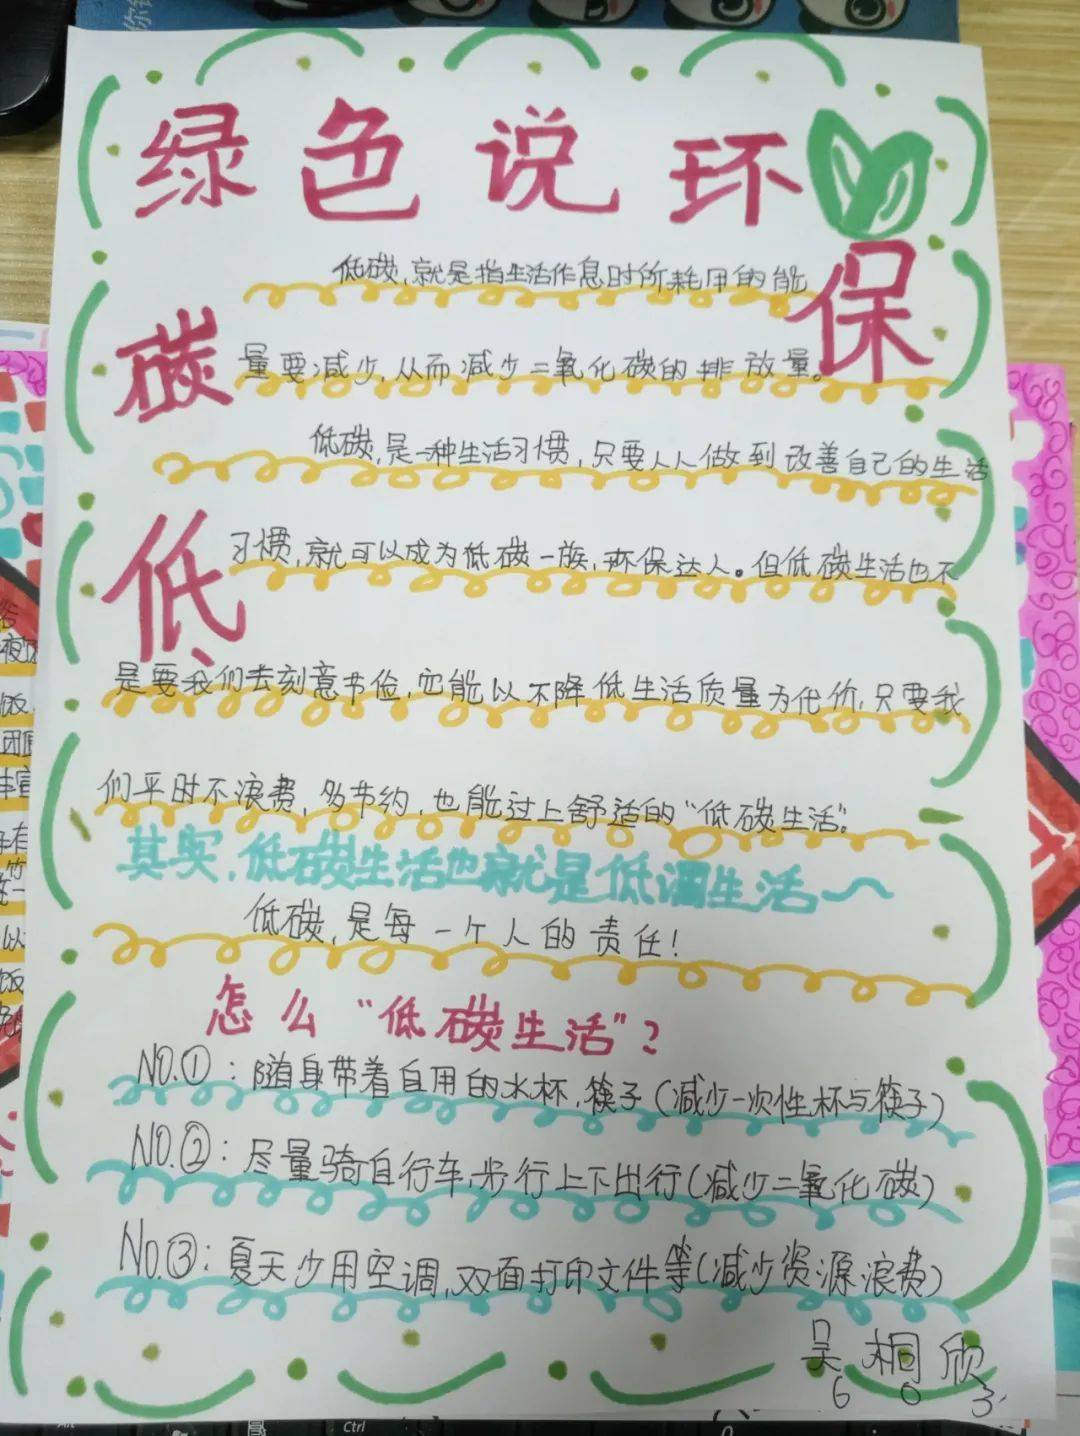 绿色说环保
低碳
低碳,就是指生活作息时所耗用的能
量要减少,从而减少二氧化碳的排放量。
低碳,是一种生活习惯,只要人人做到改善自己的生活
习惯,就可以成为低碳一族,环保达人。但低碳生活也不
是要我们去刻意节俭,它能以不降低生活质量为代价,只要我
们平时不浪费,多节约,也能过上舒适的“低碳生活”。
其实,低碳生活也就是低调生活~
低碳,是每一个人的责任!
怎么“低碳生活”?
NO.①:随身带着自用的水杯,筷子(减少一次性杯与筷子)
NO.②:尽量骑自行车,步行上下出行(减少二氧化碳)
NO.③:夏天少用空调,双面打印文件等(减少资源浪费)
吴桐欣
603
Ctrl